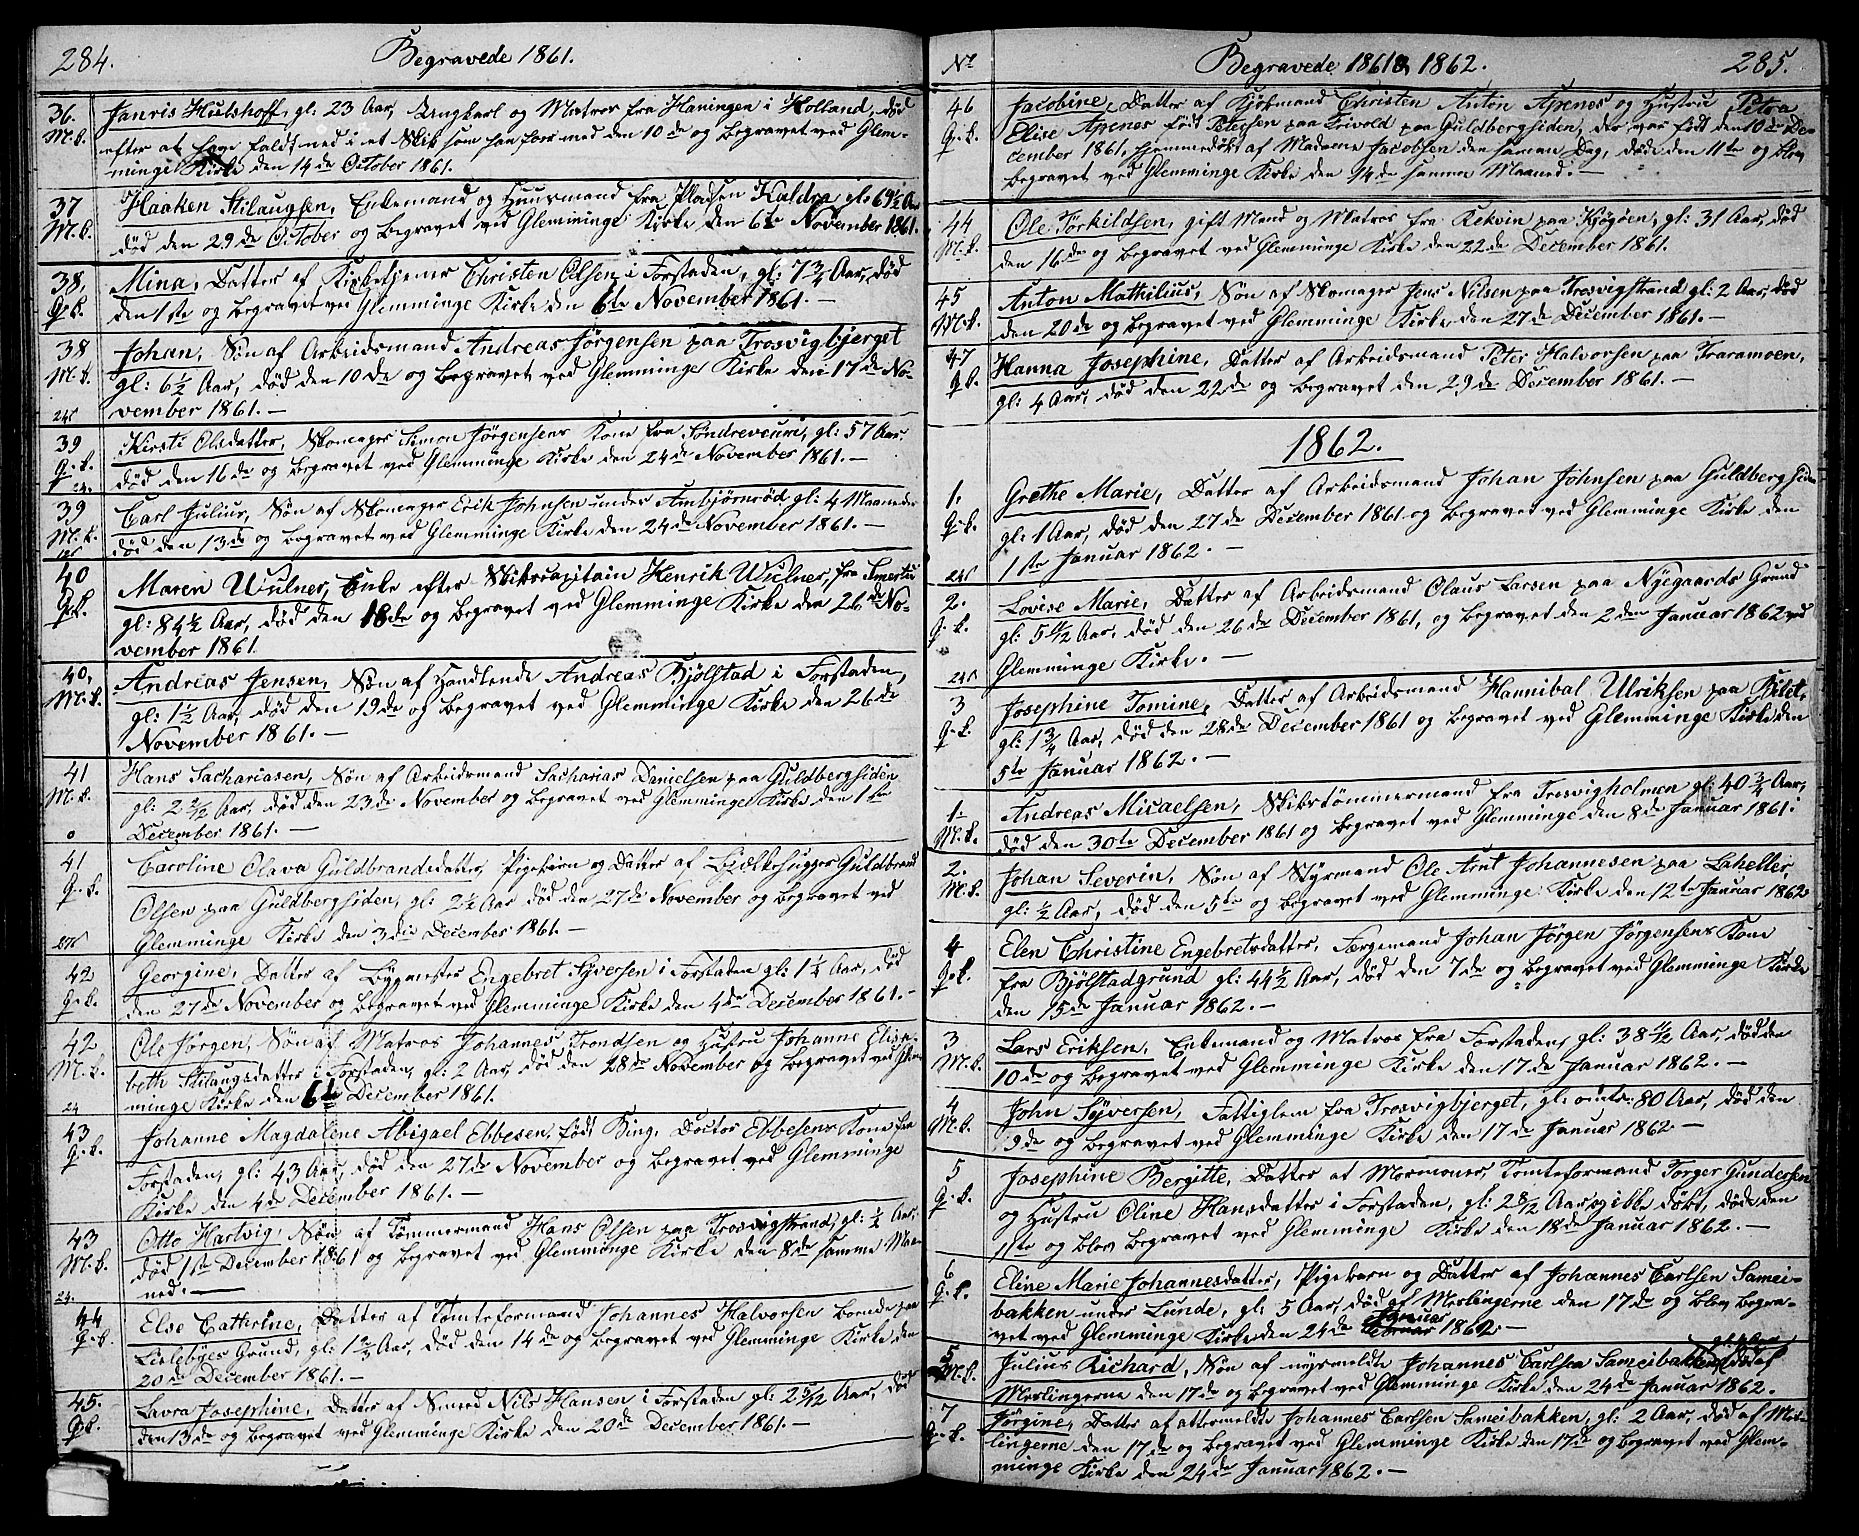 284.
Begravede 1861.
36. M.k.
Janris Hulshoff, gl. 23 Aar, Ungkarl og Matros fra Haningen i Holland, død
efter at have faldt ned i et Skib som han foer med den 10de og begravet ved Glem-
minge Kirke den 14de October 1861.
37 M.k.
Haaken Stilaugsen, Enkemand og Huusmand fra Pladsen Kaldra gl: 64½ Aar
død den 29de October og begravet ved Glemminge Kirke den 6te November 1861.
38, Q.k.
Mina, Datter af Kirketjener Christen Olsen i Forstaden, gl: 7¾ Aar, død
den 1ste og begravet ved Glemminge Kirke den 6te November 1861. —
38 M.k.
Johan, Søn af Arbeidsmand Andreas Jørgensen paa Trosvigbjerget
gl: 6½ Aar, død den 10de og begravet ved Glemminge Kirke den 17de No-
24s vember 1861. —
39 Q.k.
Kirsti Olsdatter, Skomager Simon Jørgensens Kone fra Søndreveum, gl: 57 Aar.
24. død den 16de og begravet ved Glemminge Kirke den 24de November 1861. —
39 M.k.
Carl Julius, Søn af Skomager Erik Johnsen under Ambjørnrød gl: 4 Maaneder
12s død den 13de og begravet ved Glemminge Kirke den 24de November 1861. —
40 Q.k.
Maren Wulner, Enke efter Skibscapitain Henrik Wulner, fra Smertu
gl: 84½ Aar, død den 18de og begravet ved Glemminge Kirke den 26de No-
vember 1861.
40, M.k.
Andreas Jensen, Søn af Handlende Andreas Bjølstad i Forstaden,
gl: 1½ Aar, død den 19de og begravet ved Glemminge Kirke den 26de
November 1861. —
41 M.k.
Hans Sachariasen, Søn af Arbeidsmand Sacharias Danielsen paa Guldbergsiden
gl: 2 2/12 Aar, død den 23de November og begravet ved Glemminge Kirke den 1ste
0 December 1861. —
41 Q.k.
Caroline Olava Guldbrandsdatter, Pigebarn og Datter af Bjelkehugger Guldbrand
Olsen paa Guldbergsiden, gl: 2½ Aar død den 27de November og begravet ved
27s Glemminge Kirke den 3die December 1861. —
42 Q.k.
Georgine, Datter af Bygmester Engebret Syversen i Forstaden gl: 1¼ Aar, død
den 27de November og begravet ved Glemminge Kirke den 4de December 1861. —
42 M.k.
Ole Jørgen, Søn af Matros Johannes Trondsen og Hustru Johanne Elisa-
beth Stilaugsdatter i Forstaden, gl: 2 Aar, død den 28de November og begravet ved Glem-
24 minge Kirke den 6te December 1861.
43 Q.k.
Johanne Magdalene Abigael Ebbesen, født Bing, Doctor Ebbesens Kone fra
Forstaden, gl: 43 Aar, død den 27de November og begravet ved Glemminge
Kirke den 4de December 1861. —
43 M.k.
Otto Hartvig, Søn af Tømmermand Hans Olsen paa Trosvigstrand, gl: ½ Aar,
død 1ste December 1861 og begravet ved Glemminge Kirke den 8de samme Maa-
24. ned. —
44 Q.k.
Else Cathrine, Datter af Tømteformand Johannes Halvorsen boende paa
Lislebyes Grund, gl: 1 2/3 Aar, død den 14de og begravet ved Glemminge Kirke den
20de December 1861. —
45. Q.k.
Lavra Josephine, Datter af Smed Nils Hansen i Forstaden gl: 2 5/12 Aar, død
den 13de og begravet ved Glemminge Kirke den 20de December 1861. —
No
Begravede 1861 & 1862.
285.
46 Q.k.
Jacobine, Datter af Kjøbmand Christen Anton Apenes og Hustru Petra
Elise Apenes født Petersen paa Trivold paa Guldbergsiden, der var født den 10de De-
cember 1861, hjemmedøbt af Madame Jacobsen den samme Dag, døde den 11te og blev
begravet ved Glemminge Kirke den 14de samme Maaned. —
44 M.k.
Ole Torkildsen, gift Mand og Matros fra Rekvin paa Kragøen, gl: 31 Aar, død
den 16de og begravet ved Glemminge Kirke den 22de December 1861.
45 M.k.
Anton Mathilius, Søn af Skomager Jens Nilsen paa Trosvigstrand gl: 2 Aar, død
den 20de og begravet ved Glemminge Kirke den 27de December 1861. —
47 Q.k.
Hanna Josephine, Datter af Arbeidsmand Peter Halvorsen paa Traramoen,
gl: 4 Aar, død den 22de og begravet den 29de December 1861. —
1862.
1. Q.k.
Grethe Marie, Datter af Arbeidsmand Johan Johnsen paa Guldbergsiden
gl: 1 Aar, død den 27de December 1861 og begravet ved Glemminge Kirke den
24s 1ste Januar 1862. —
2. Q.k.
Lovise Marie, Datter af Arbeidsmand Olaus Larsen paa Nyegaards Grund
gl: 5 11/12 Aar, død den 26de December 1861, og begravet den 2den Januar 1862 ved
24s Glemminge Kirke. —
3 Q.k.
Josephine Tomine, Datter af Arbeidsmand Hannibal Ulriksen paa Bilet,
gl: 1¾ Aar, død den 28de December 1861 og begravet ved Glemminge Kirke den
5te Januar 1862. —
1. M.k.
Andreas Micaelsen, Skibstømmermand fra Trosvigholmen gl: 40¾ Aar,
død den 30te December 1861 og begravet ved Glemminge den 8de Januar 1861.
2. M.k.
Johan Severin, Søn af Styrmand Ole Arnt Johannesen paa Laheller,
gl: ½ Aar, død den 5te og begravet ved Glemminge Kirke den 12te Januar 1862
4 Q.k.
Elen Christine Engebretsdatter, Færgemand Johan Jørgen Jørgensens Kone
fra Bjølstadgrund gl: 44½ Aar, død den 7de og begravet ved Glemminge Kirke
den 15de Januar 1862. —
3 M.k.
Lars Eriksen, Enkemand og Matros fra Forstaden, gl: 38 11/12 Aar, død den
10de og begravet ved Glemminge Kirke den 17de Januar 1862. —
4 M.k.
John Syversen, Fattiglem fra Trosvigbjerget, gl: omtr. 80 Aar, død den
9de og begravet ved Glemminge Kirke den 17de Januar 1862. —
5 Q.k.
Josephine Bergitte, Datter af Mormoner, Tomteformand Torger Gundersen
og Hustru Oline Hansdatter i Forstaden, gl: 2 8/12 Aar og ikke døbt, døde den
11te og blev begravet ved Glemminge Kirke den 18de Januar 1862. —
6 Q.k.
Eline Marie Johannesdatter, Pigebarn og Datter af Johannes Carlsen Samei-
bakken under Lunde, gl: 5 Aar, død af Meslingerne den 17de og blev begra-
vet ved Glemminge Kirke den 24de Januar 1862. —
5 M.k.
Julius Richard, Søn af nysmeldte Johannes Carlsen Sameibakken, død af
Meslingerne den 17de og begravet ved Glemminge Kirke den 24de Januar 1862.
7 Q.k.
Jørgine, Datter af attermeldte Johannes Carlsen Sameibakken, gl: 2 Aar, død af Mes-
lingerne den 17de og begravet ved Glemminge Kirke den 17de og begravet ved Glem-
minge Kirke den 24de Januar 1862. —